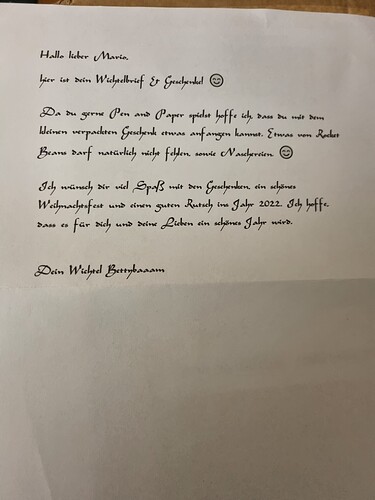 Hallo lieber Mario,
hier ist dein Wichtelbrief & Geschenke! 😊
Da du gerne Pen and Paper spielst hoffe ich, dass du mit dem
kleinen verpackten Geschenk etwas anfangen kannst. Etwas von Rocket
Beans darf natürlich nicht fehlen, sowie Naschereien 😊
Ich wünsch dir viel Spaß mit den Geschenken, ein schönes
Weihnachtsfest und einen guten Rutsch ins Jahr 2022. Ich hoffe,
dass es für dich und deine Lieben ein schönes Jahr wird.
Dein Wichtel Bettybaaam